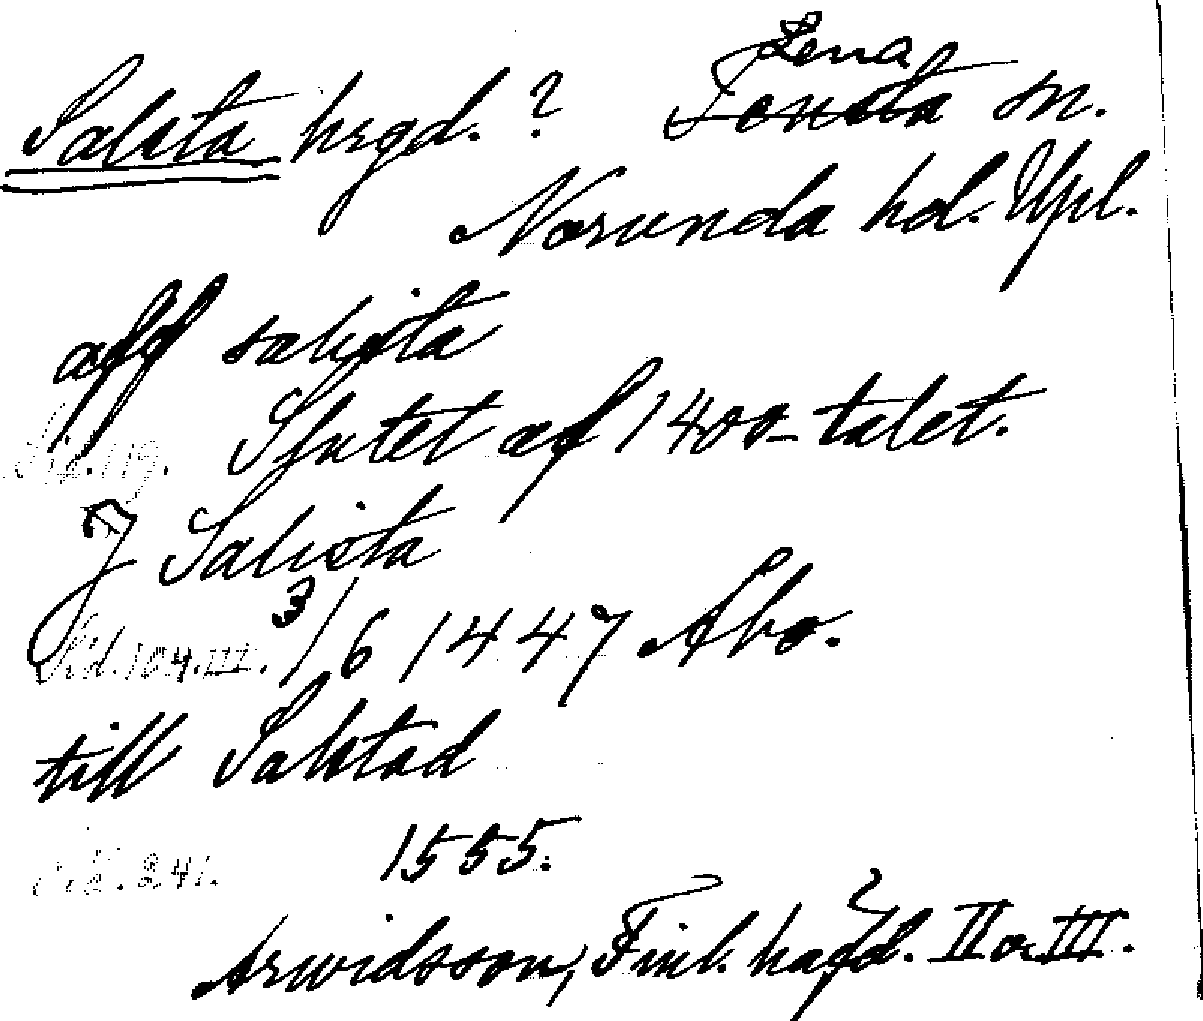 Salsta hrgd. ? Lena
Tensta sn.
Norunda hd. Upl.
aff salista
Sid. 119. Slutet af 1400-talet.
J Salista
Sid. 104. III. 3/6 1447 Åbo.
till Salstad
Sid. 241. 1555.
Arwidsson, Finl. häfd. II o. III.